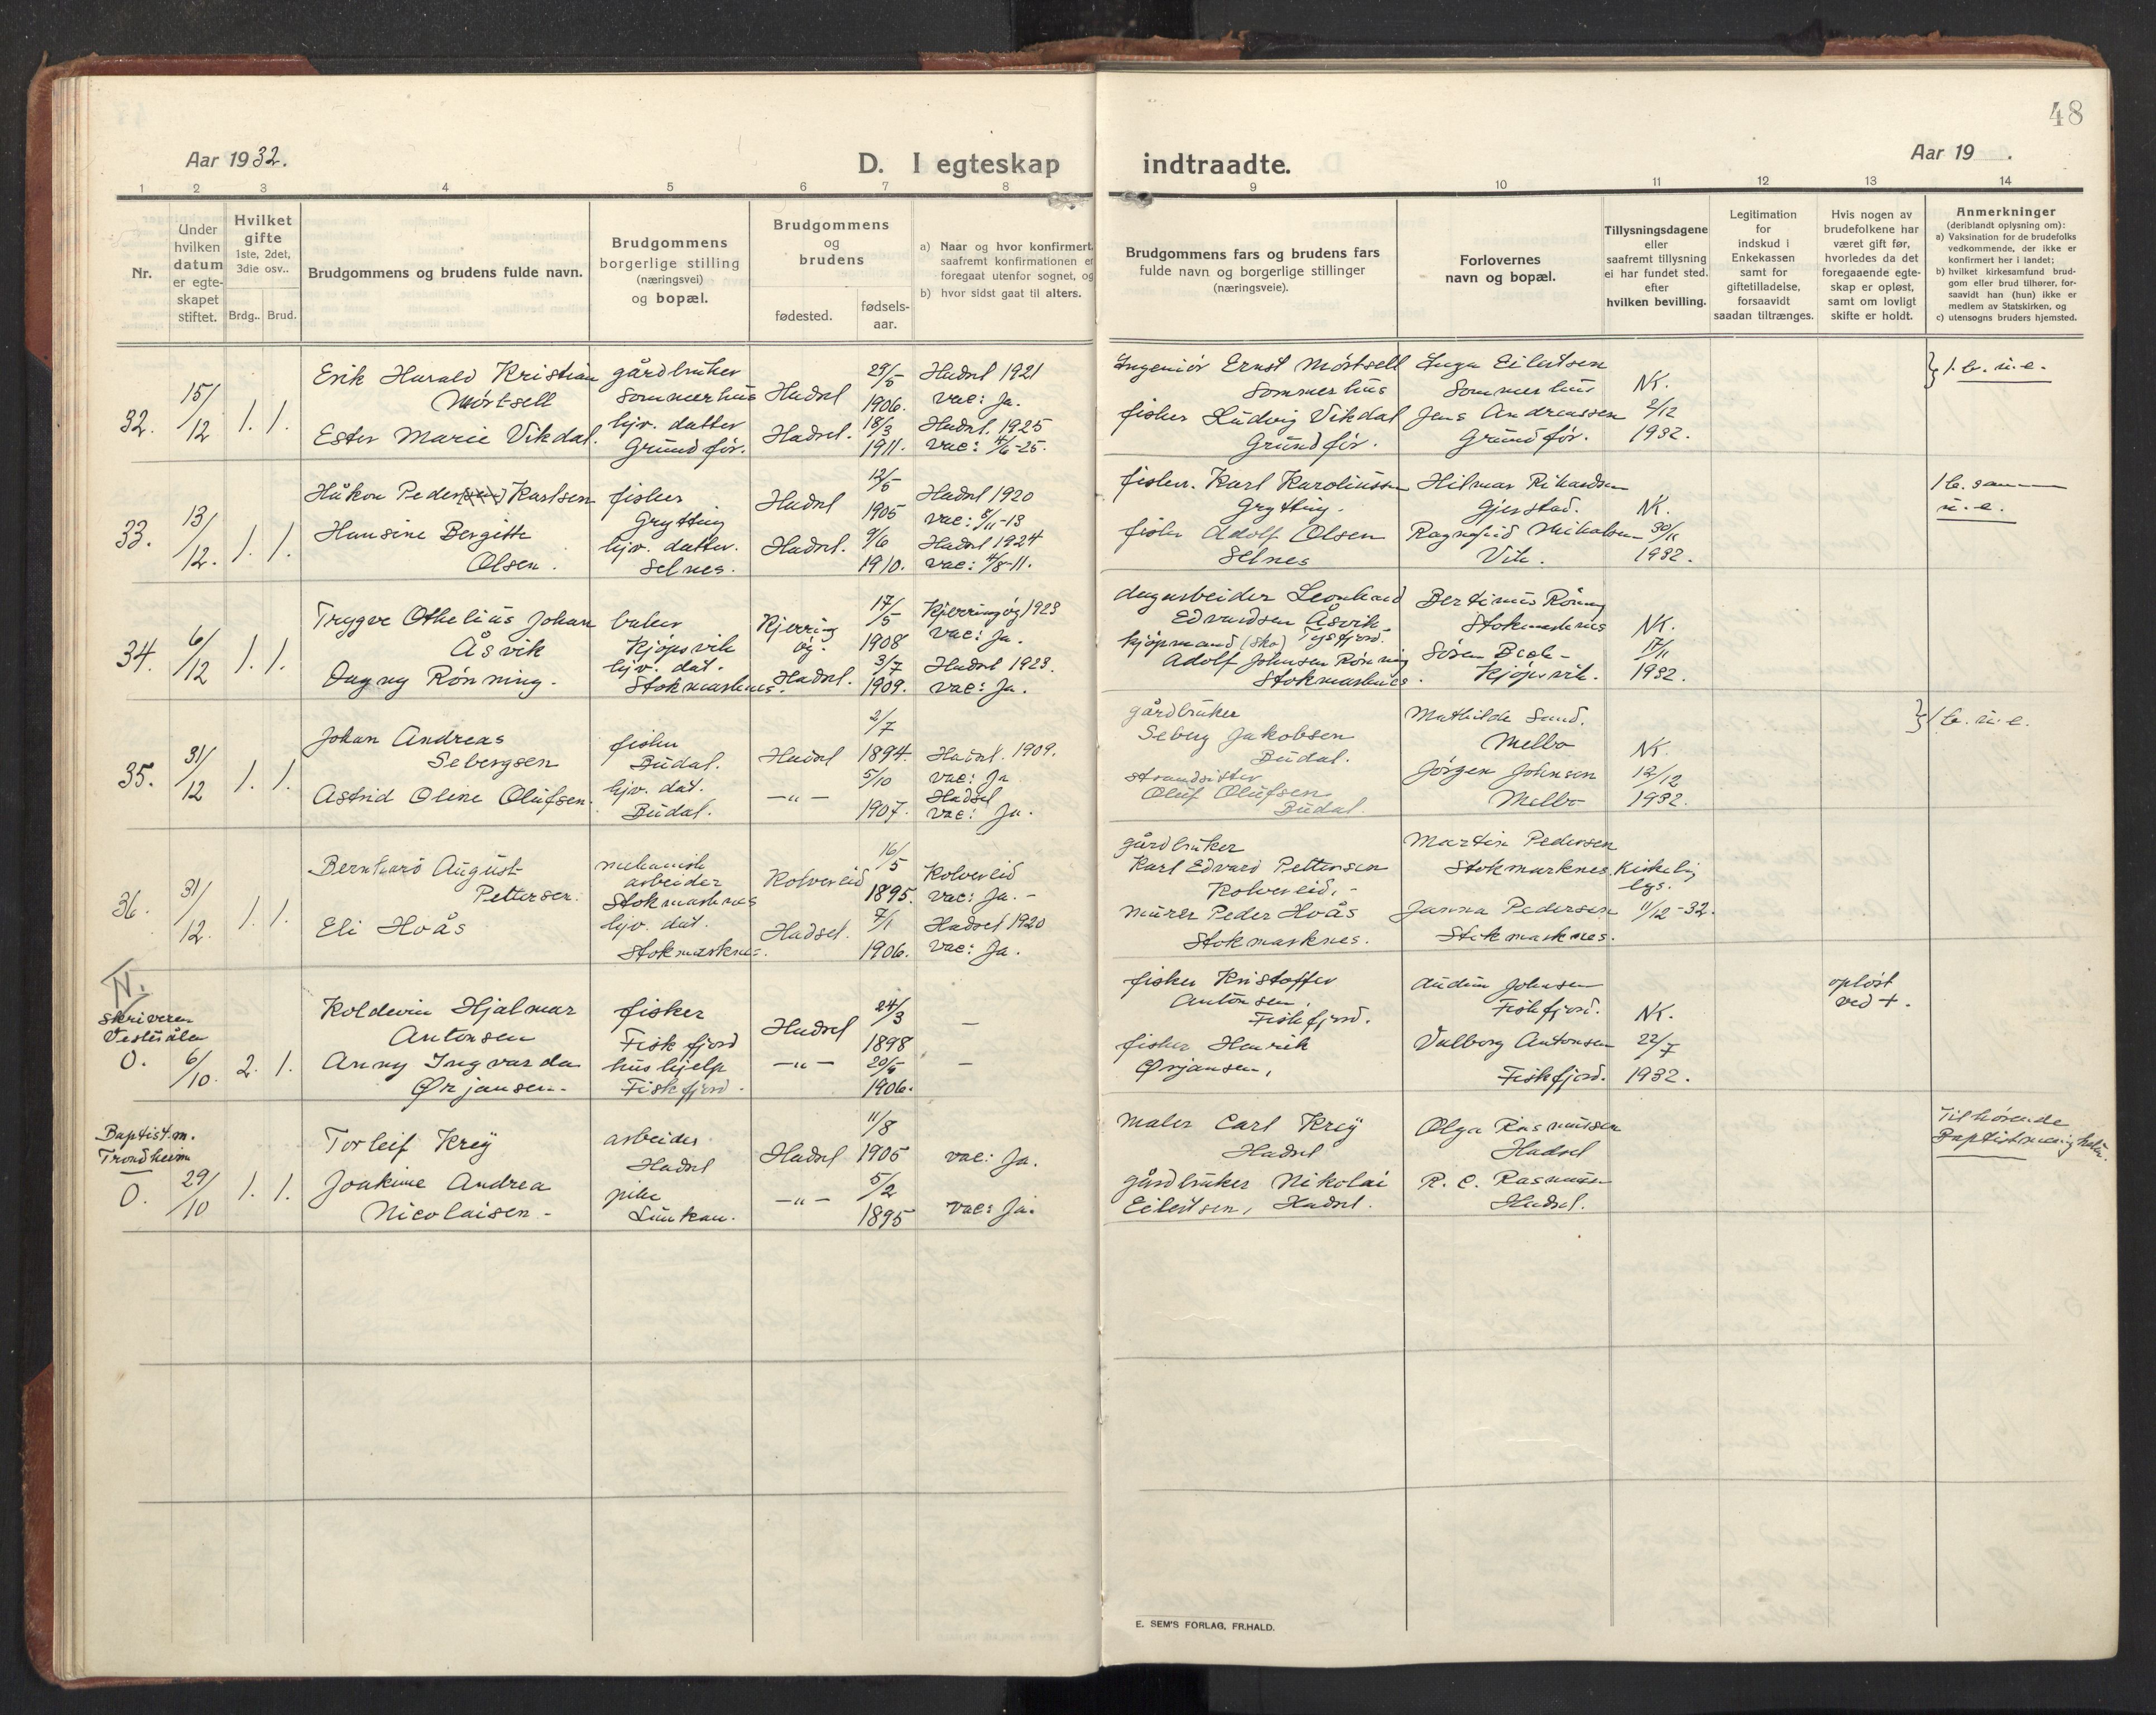 48
Aar 1932.
D. I egteskap indtraadte.
Aar 19 .
1 2 3 4 5 6 7 8 9 10 11 12 13 14
Nr.
Under
hvilken
datum
er egte-
skapet
stiftet.
Hvilket
gifte
1ste, 2det,
3die osv..
Brdg.. Brud.
Brudgommens og brudens fulde navn.
Brudgommens
borgerlige stilling
(næringsvei)
og bopæl.
Brudgommens
og
brudens
fødested.
fødsels-
aar.
a) Naar og hvor konfirmert,
saafremt konfirmationen er
foregaat utenfor sognet, og
b) hvor sidst gaat til alters.
Brudgommens fars og brudens fars
fulde navn og borgerlige stillinger
(næringsveie).
Forlovernes
navn og bopæl.
Tillysningsdagene
eller
saafremt tillysning
ei har fundet sted.
efter
hvilken bevilling.
Legitimation
for
indskud i
Enkekassen
samt for
giftetilladelse,
forsaavidt
saadan tiltrænges.
Hvis nogen av
brudefolkene har
været gift før,
hvorledes da det
foregaaende egte-
skap er opløst,
samt om lovligt
skifte er holdt.
Anmerkninger
(deriblandt oplysning om):
a) Vaksination for de brudefolks
vedkommende, der ikke er
konfirmert her i landet;
b) hvilket kirkesamfund brud-
gom eller brud tilhører, for-
saavidt han (hun) ikke er
medlem av Statskirken, og
c) utensogns bruders hjemsted.
32.
15/12
1. 1.
Erik Harald Kristian
Mørtsell
Ester Marie Vikdal.
gårdbruker
Sommerhus
hjv. datter
Grundfør.
Hadsel
Hadsel.
29/5
1906.
18/3
1911.
Hadsel 1921
vac: Ja.
Hadsel. 1925
vac: 4/6-25.
Ingeniør Ernst Mørtsell
Sommerhus
fisker Ludvig Vikdal
Grundfør.
Inga Eilertsen
Sommerhus
Jens Andreassen
Grundfør.
NK.
2/12
1932.
1 b. u. e.
33.
13/12.
1. 1.
Håkon Peder Karlsen
Hansine Bergitte
Olsen.
fisker
Grytting
hjv. datter.
Selnes.
Hadsel
Hadsel.
12/5
1905
9/6
1910.
Hadsel 1920
vac: 5/11-13
Hadsel 1924
vac: 4/8-11.
fisker. Karl Karoliussen
Grytting.
fisker Adolf Olsen
Selnes
Hilmar Rikardsen
Gjerstad.
Ragnfrid Mikalsen
Vik.
NK.
30/11
1932.
1 b. sam
u. e.
34.
6/12
1. 1.
Trygve Othelius Johan
Åsvik
Dagny Rønning.
baker
Kjøpsvik
hjv. dat.
Stokmarknes.
Kjerring
øy.
Hadsel.
17/5
1908
3/7
1909.
Kjerringøy 1923
vac: Ja.
Hadsel 1923.
vac: Ja.
dagarbeider Leonhard
Edvardsen Åsvik
Tysfjord.
kjøpmand (sko)
Adolf Johnsen Rønning
Stokmarknes.
Bertinus Røning
Stokmarknes
Søren Beck -
Kjøpsvik.
NK.
17/11
1932.
35.
31/12
1. 1.
Johan Andreas
Sebergsen
Astrid Oline Olufsen.
fisker
Budal.
hjv. dat.
Budal.
Hadsel
—"—
2/7
1894.
5/10
1907.
Hadsel. 1909.
vac: Ja
Hadsel
vac: Ja.
gårdbruker
Seberg Jakobsen
Budal.
strandsitter
Oluf Olufsen
Budal.
Mathilde Sund.
Melbo
Jørgen Johnsen
Melbo
NK.
12/12
1932.
1 b. u. e.
36.
31/12.
1. 1.
Bernhard August
Pettersen.
Eli Hoås
mekanisk
arbeider
Stokmarknes
hjv. dat.
Stokmarknes.
Kolvereid
Hadsel.
16/5
1895.
7/1
1906.
Kolvereid
vac: Ja.-
Hadsel 1920
vac: Ja.
gårdbruker
Karl Edvard Pettersen
Kolvereid.-
murer Peder Hoås
Stokmarknes.
Martin Pedersen
Stokmarknes.
Janna Pedersen
Stokmarknes.
Kirkelig
lys.
11/12-32.
N.
Skriveren
Vesterålen
O.
6/10.
2. 1.
Koldevin Hjalmar
Antonsen
Anny Ingvarda
Ørjansen.
fisker
Fiskfjord
hushjelp
Fiskefjord.
Hadsel
—"—
24/3
1898
20/5
1906.
—
—
fisker Kristoffer
Antonsen,
Fiskfjord.
fisker Henrik
Ørjansen,
Audun Johnsen
Fiskfjord.
Valborg Antonsen
Fiskfjord.
NK.
22/7
1932.
opløst
ved +.
Baptist.m.
Trondheim
O.
29/10
1. 1.
Torleif Krey
Joakime Andrea
Nicolaisen-
arbeider
Hadsel
pike
Lunkan.
Hadsel
—"—
11/8
1905
5/2
1895
vac: Ja.
vac: Ja.
Maler Carl Krey
Hadsel
gårdbruker Nikolai
Eilertsen, Hadsel.
Olga Rasmussen
Hadsel
R. C. Rasmussen
Hadsel.
Tilhørende
Baptistmenigheten.
E. SEM'S FORLAG, FR.HALD.